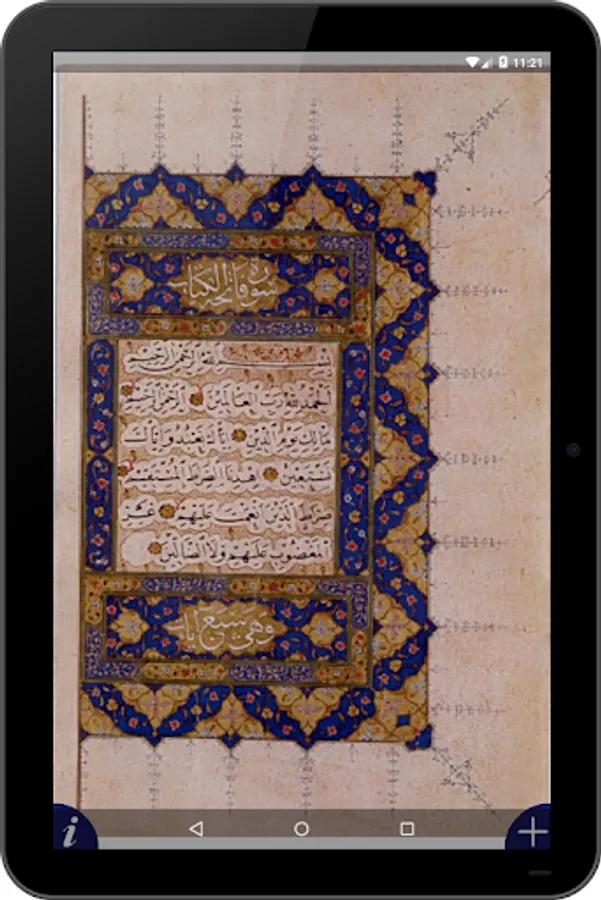 11:21
سورة فاتحة الكتاب
بسم الله الرحمن الرحيم
الحمد لله رب العالمين الرحمن الرحيم
مالك يوم الدين اياك نعبد واياك
نستعين اهدنا الصراط المستقيم
صراط الذين انعمت عليهم غير
المغضوب عليهم ولا الضالين
وهي سبع آيات
i
+